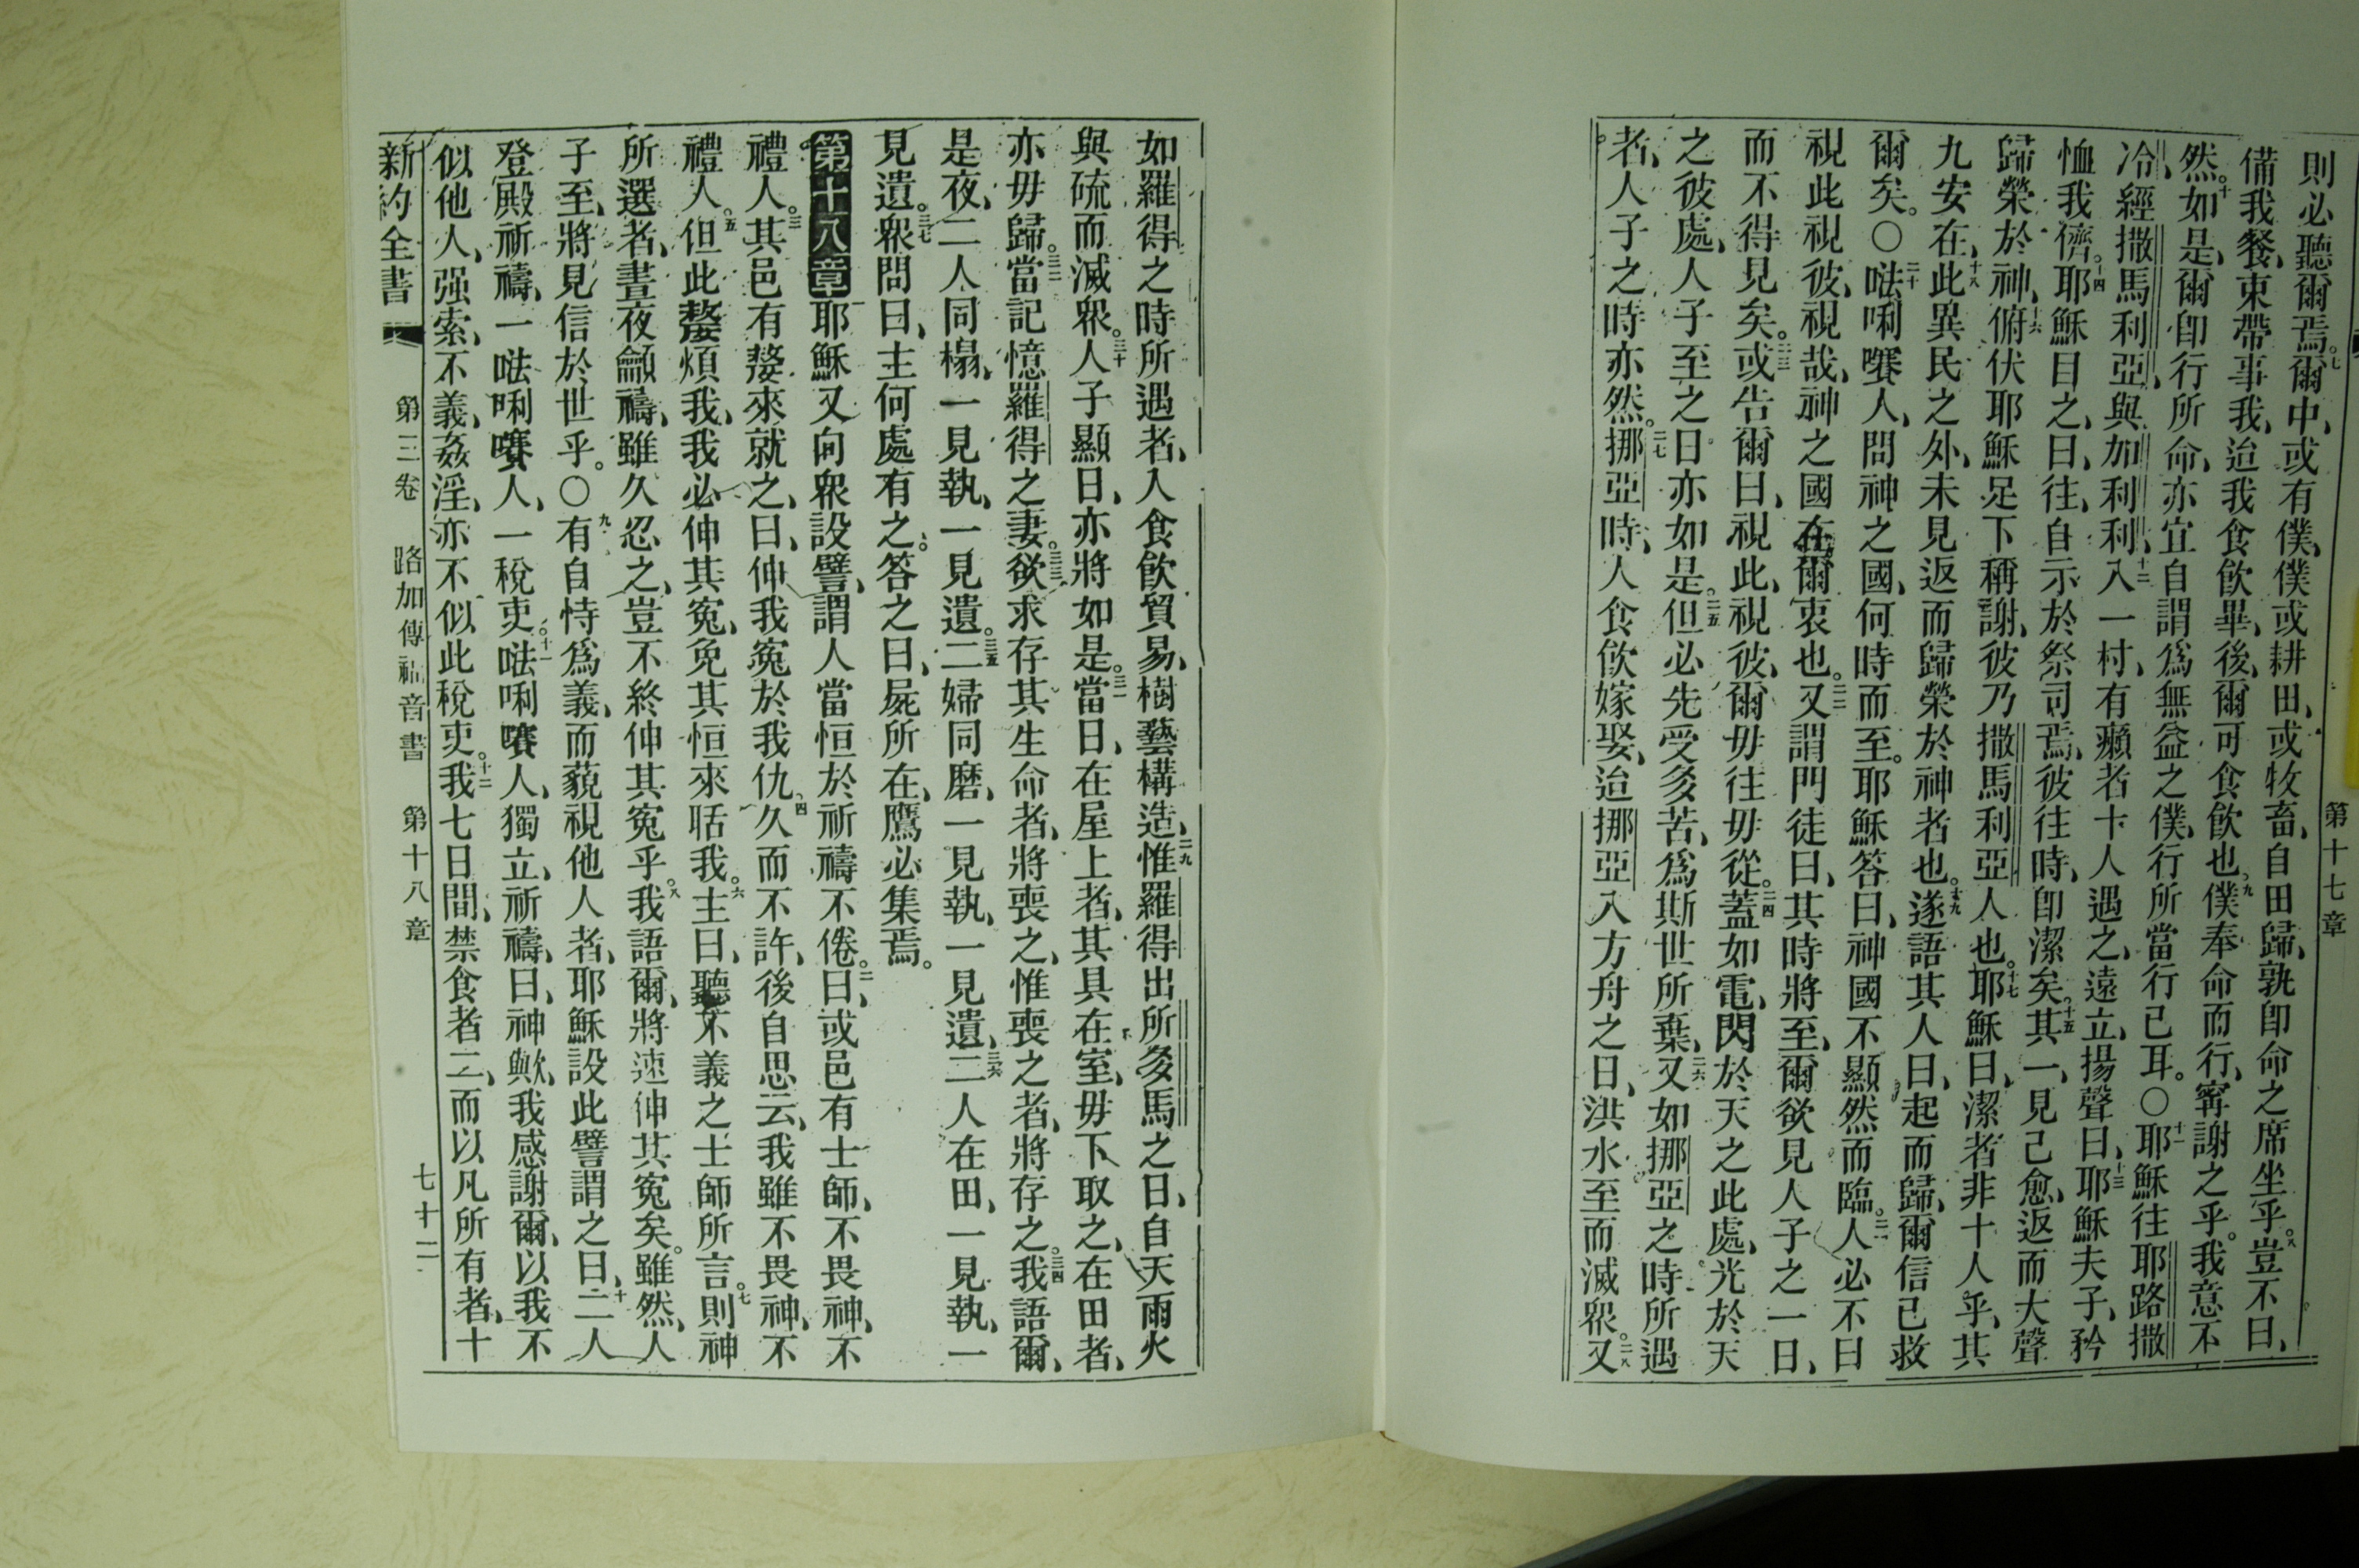 第十七章
則必聽爾焉。七爾中、或有僕、僕或耕田、或牧畜、自田歸、孰卽命之席坐乎。八豈不曰、
備我餐、束帶事我、迨我食飮畢、後爾可食飮也、九僕奉命而行、寗謝之乎。我意不
然。十如是、爾卽行所命、亦宜自謂爲無益之僕、行所當行已耳。〇十一耶穌往耶路撒
冷、經撒馬利亞、與加利利、十二入一村、有癩者十人遇之、遠立、揚聲曰、十三耶穌夫子、矜
恤我儕。十四耶穌目之、曰、往、自示於祭司焉、彼往時、卽潔矣。十五其一、見己愈、返而大聲
歸榮於神、十六俯伏耶穌足下稱謝、彼乃撒馬利亞人也。十七耶穌曰、潔者非十人乎、其
九安在、十八此異民之外、未見返而歸榮於神者也。十九遂語其人曰、起而歸、爾信已救
爾矣。〇二十㕸唎㘔人、問神之國、何時而至。耶穌答曰、神國不顯然而臨。二一人必不曰
視此視彼、視哉、神之國在爾衷也。二二又謂門徒曰、其時將至、爾欲見人子之一日、
而不得見矣。二三或告爾曰、視此、視彼、爾毋往毋從。二四蓋如電、閃於天之此處、光於天
之彼處、人子至之日亦如是。二五但必先受多苦、爲斯世所棄、二六又如挪亞之時所遇
者、人子之時亦然。二七挪亞時、人食飮嫁娶、迨挪亞入方舟之日、洪水至而滅衆。二八又
如羅得之時所遇者、人食飮貿易、樹藝構造、二九惟羅得出所多馬之日、自天雨火
與硫而滅衆。三十人子顯日、亦將如是。三一當日、在屋上者、其具在室、毋下取之、在田者、
亦毋歸。三二當記憶羅得之妻。三三欲求存其生命者、將喪之、惟喪之者、將存之。三四我語爾、
是夜、二人同榻、一見執、一見遺。三五二婦同磨、一見執、一見遺、三六二人在田、一見執、一
見遺。三七衆問曰、主何處有之。答之曰、屍所在、鷹必集焉。
第十八章耶穌又向衆設譬、謂人當恒於祈禱不倦。二曰、或邑有士師、不畏神、不
禮人。三其邑有嫠來就之、曰、伸我寃於我仇、四久而不許、後自思云、我雖不畏神、不
禮人。五但此嫠煩我、我必伸其寃、免其恒來聒我。六主曰、聽不義之士師所言。七則神
所選者、晝夜籲禱、雖久忍之、豈不終伸其寃乎。八我語爾、將速伸其寃矣。雖然、人
子至、將見信於世乎。〇九有自恃爲義、而藐視他人者、耶穌設此譬謂之曰、十二人
登殿祈禱、一㕸唎㘔人、一稅吏。十一㕸唎㘔人、獨立、祈禱、曰、神歟、我感謝爾、以我不
似他人、强索、不義、姦淫、亦不似此稅吏。十二我七日間、禁食者二、而以凡所有者、十
新約全書 第三卷 路加傳福音書 第十八章 七十二